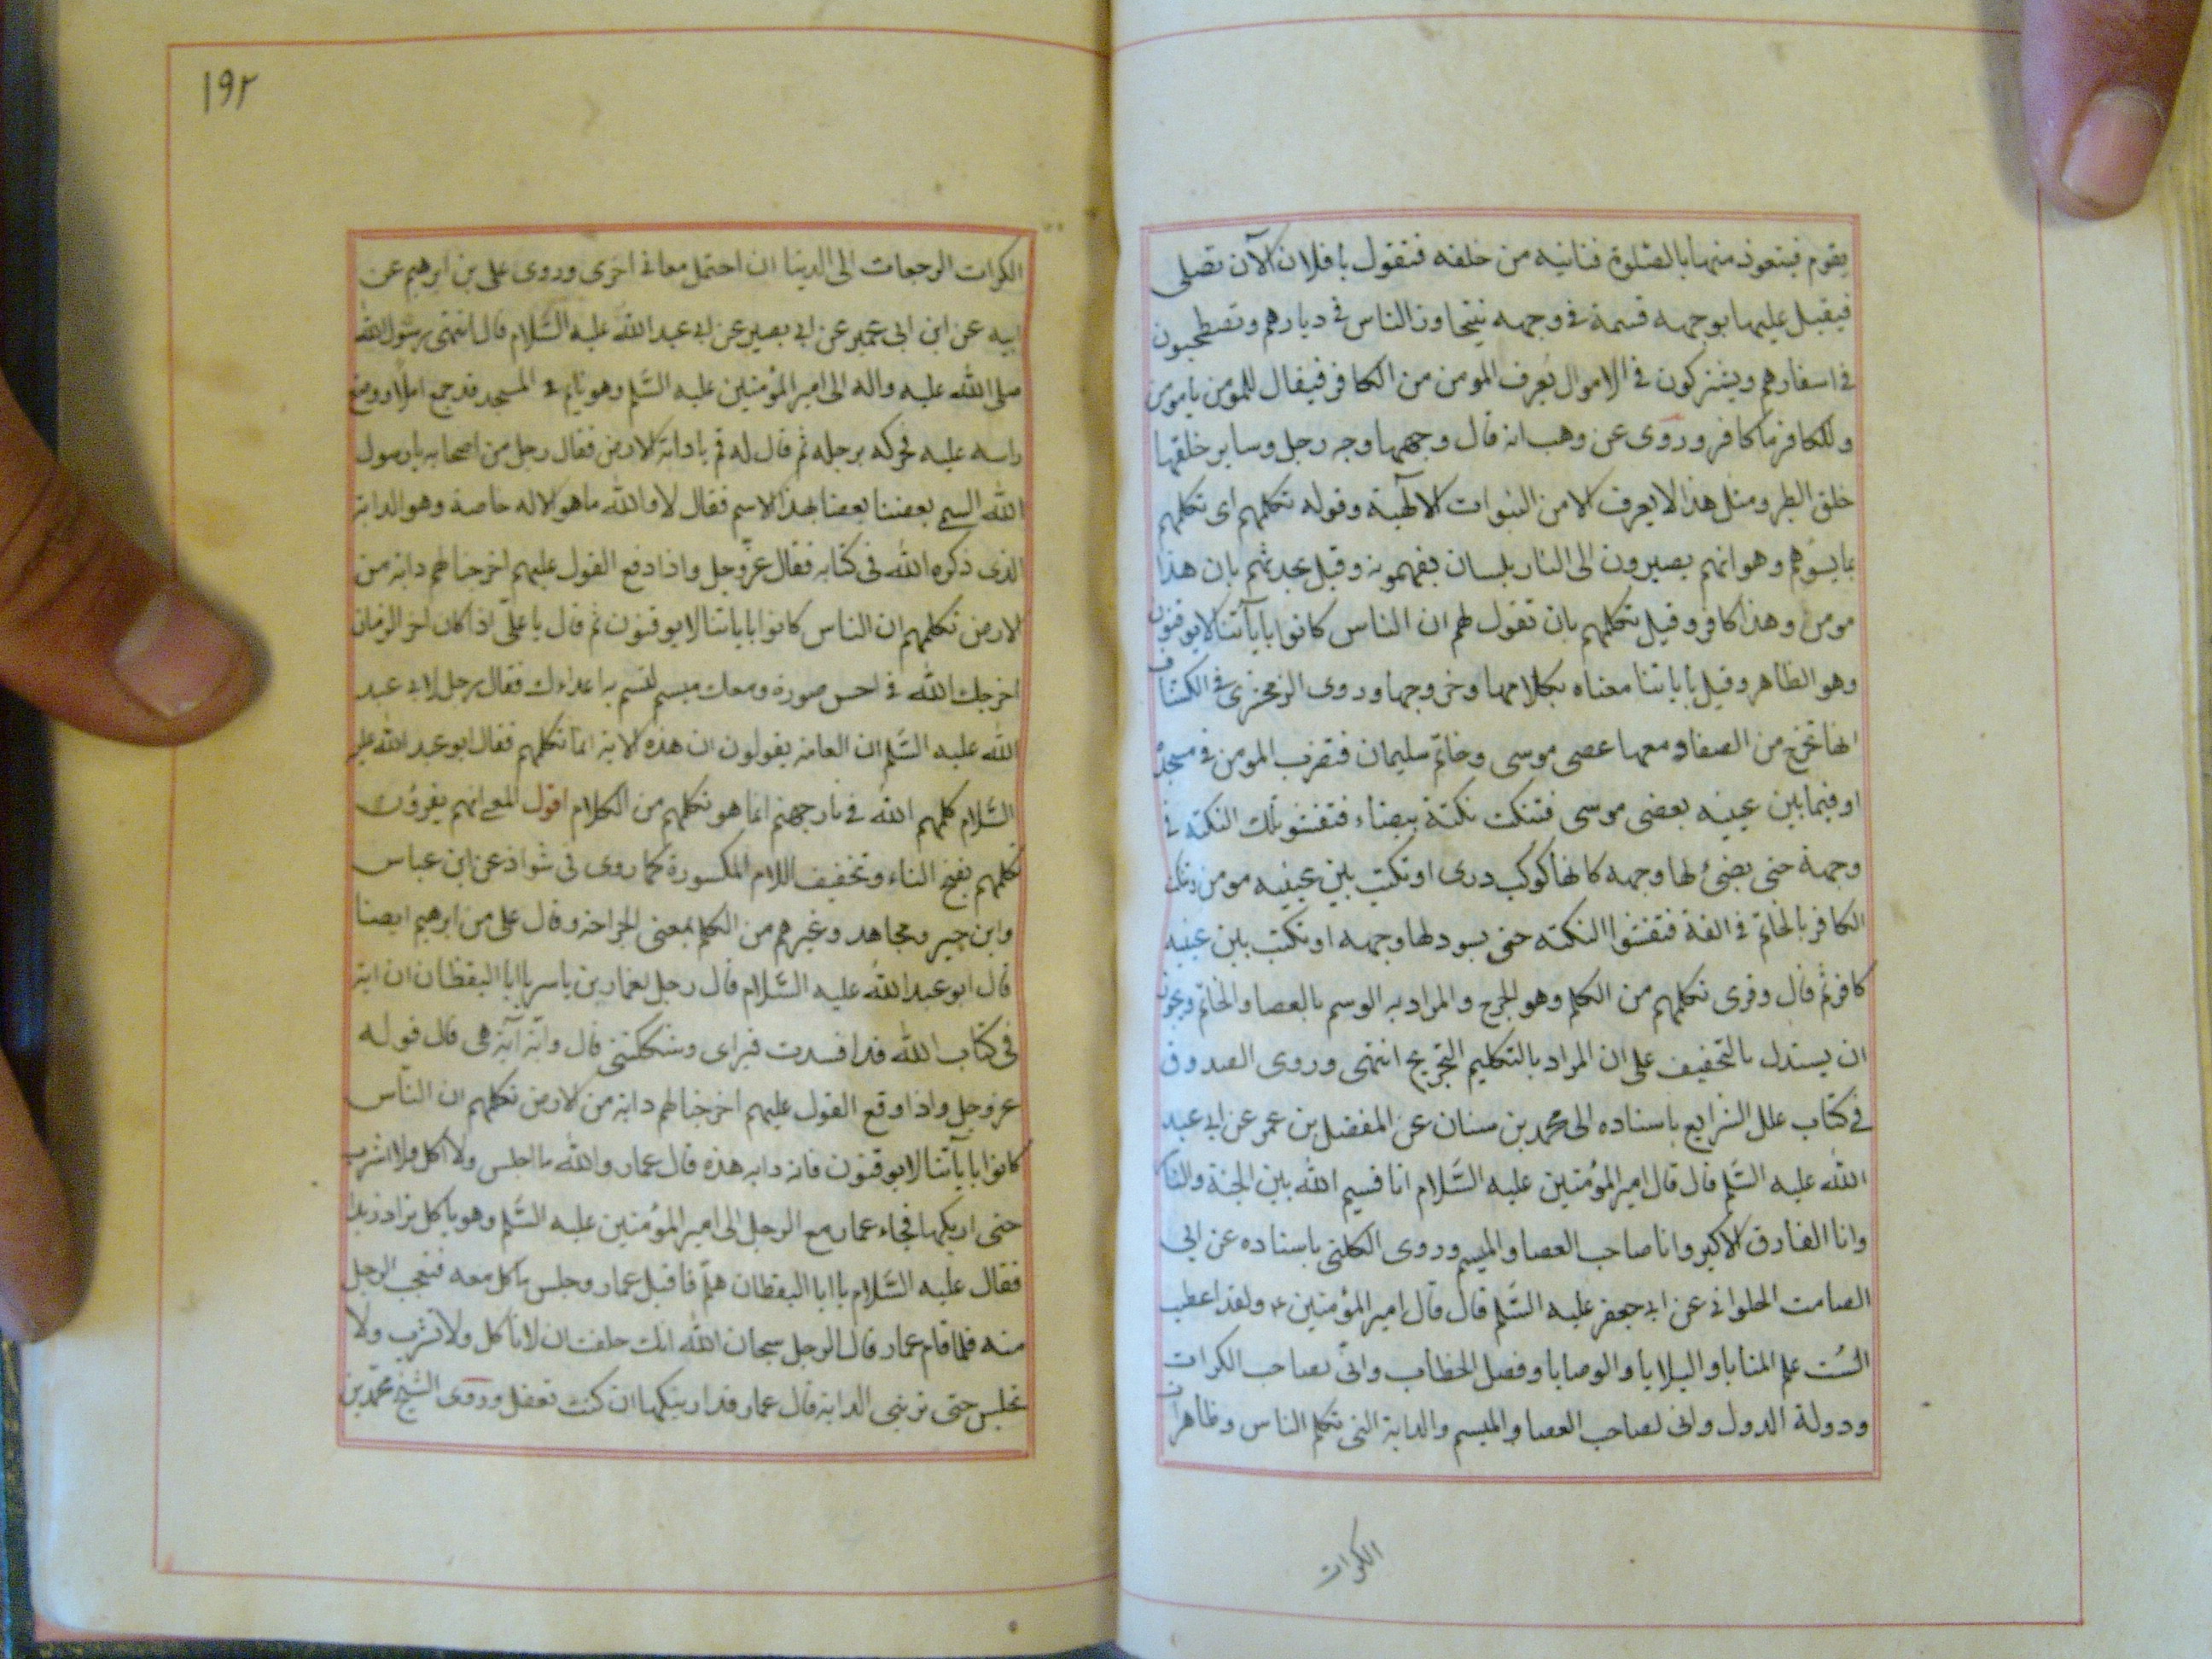 يقوم فيتعوذ منها بالصلوة فتاتيه من خلفه فتقول يا فلان الآن تصلى
فيقبل عليها بوجهه فتسمه في وجهه فيتجاوز الناس في ديارهم وتصطحبون
في اسفارهم ويشتركون في الاموال يُعرف المومن من الكافر فيقال للمومن يا مومن
وللكافر يا كافر وروى عن وهب انه قال وجهها وجه رجل وساير خلقها
خلق الطير ومثل هذا لا يعرف الا من النبوات الالهية وقوله تكلمهم اى تكلمهم
بما يسؤهم وهو انهم يصيرون الى النار بلسان يفهمونه وقيل تحدثهم بان هذا
مومن وهذا كافر وقيل تكلمهم بان تقول لهم ان الناس كانوا بآياتنا لا يوقنون
وهو الظاهر وقيل باياتنا معناه بكلامها وخروجها وروى الزمخشرى في الكشاف
انها تخرج من الصفا ومعها عصى موسى وخاتم سليمان فتضرب المومن في مسجده
او فيما بين عينيه بعصى موسى فتنكت نكتة بيضاء فتفشو تلك النكته في
وجهه حتى يضئ لها وجهه كانها كوكب درى او تكتب بين عينيه مومن وتنكت
الكافر بالخاتم في انفه فتفشوا النكته حتى يسود لها وجهه او تكتب بين عينيه
كافر ثم قال وقرى تكلمهم من الكلم وهو الجرح والمراد به الوسم بالعصا والخاتم ويجوز
ان يستدل بالتخفيف على ان المراد بالتكليم التجريح انتهى وروى الصدوق
في كتاب علل الشرايع باسناده الى محمد بن سنان عن المفضل بن عمر عن ابي عبد
الله عليه السَّلم قال قال امير المؤمنين عليه السَّلام انا قسيم الله بين الجنة والنار
وانا الفاروق الاكبر وانا صاحب العصا والميسم وروى الكلينى باسناده عن ابي
الصامت الحلواني عن ابي جعفر عليه السَّلم قال قال امير المؤمنين ع ولقد اعطيت
السُت علم المنايا والبلايا والوصايا وفصل الخطاب وانّى لصاحب الكرات
ودولة الدول وانى لصاحب العصا والميسم والدابة التى تكلم الناس وظاهر ان
الكرات
١٩٢
الكرات الرجعات الى الدنيا ان احتمل معانى اخرى وروى على بن ابرهيم عن
ابيه عن ابن ابى عمير عن ابي بصير عن ابي عبد الله عليه السَّلام قال انتهى رسول الله
صلى الله عليه واله الى امير المؤمنين عليه السَّلم وهو نايم في المسجد قد جمع رملا ووضع
راسه عليه فحركه برجله ثم قال له قم يا دابة الارض فقال رجل من اصحابه يا رسول
الله اليسمى بعضنا بعضا بهذا الاسم فقال لا والله ما هو الا له خاصة وهو الدابة
الذى ذكره الله في كتابه فقال عزّ وجل واذا وقع القول عليهم اخرجنا لهم دابة من
الارض تكلمهم ان الناس كانوا باياتنا لا يوقنون ثم قال يا على اذا كان اخر الزمان
اخرجك الله في احسن صورة ومعك ميسم تسم به اعداءك فقال رجل لابي عبد
الله عليه السَّلم ان العامة يقولون ان هذه الاية انما تكلمهم فقال ابو عبد الله عليه
السَّلام كلمهم الله في نار جهنم انما هو تكلمهم من الكلام اقول المعنى انهم يقرؤن
تكلمهم بفتح التاء وتخفيف اللام المكسورة كما روى في شواذ عن ابن عباس
وابن جبير ومجاهد وغيرهم من الكلم بمعنى الجراحة وقال على من ابرهيم ايضا
قال ابو عبد الله عليه السَّلام قال رجل لعمار بن ياسر يا ابا اليقظان ان اية
في كتاب الله قد افسدت قبراى وشككتنى قال واية آية هي قال قوله
عز وجل واذا وقع القول عليهم اخرجنا لهم دابة من الارض تكلمهم ان الناس
كانوا باياتنا لا يوقنون فاية دابه هذه قال عمار والله ما اجلس ولا اكل ولا اشرب
حتى اريكها فجاء عمار مع الرجل الى امير المؤمنين عليه السَّلم وهو ياكل تمرا وزبدا
فقال عليه السَّلام يا ابا اليقظان هلم فاقبل عمار وجلس ياكل معه فتعجب الرجل
منه فلما قام عمار قال الرجل سبحان الله انك حلفت ان لا تاكل ولا تشرب ولا
تجلس حتى ترينى الدابة قال عمار قد اريتكها ان كنت تعقل وروى الشيخ محمد بن